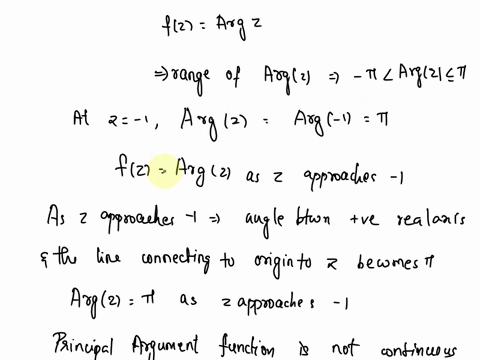 f(z) = Arg z
⇒ range of Arg(z) ⇒ -π < Arg(z) ≤ π
At z = -1, Arg(z) = Arg(-1) = π
f(z) = Arg(z) as z approaches -1
As z approaches -1 ⇒ angle btwn +ve real axis
& the line connecting to origin to z becomes π
Arg(z) = π as z approaches -1
Principal Argument function is not continuous